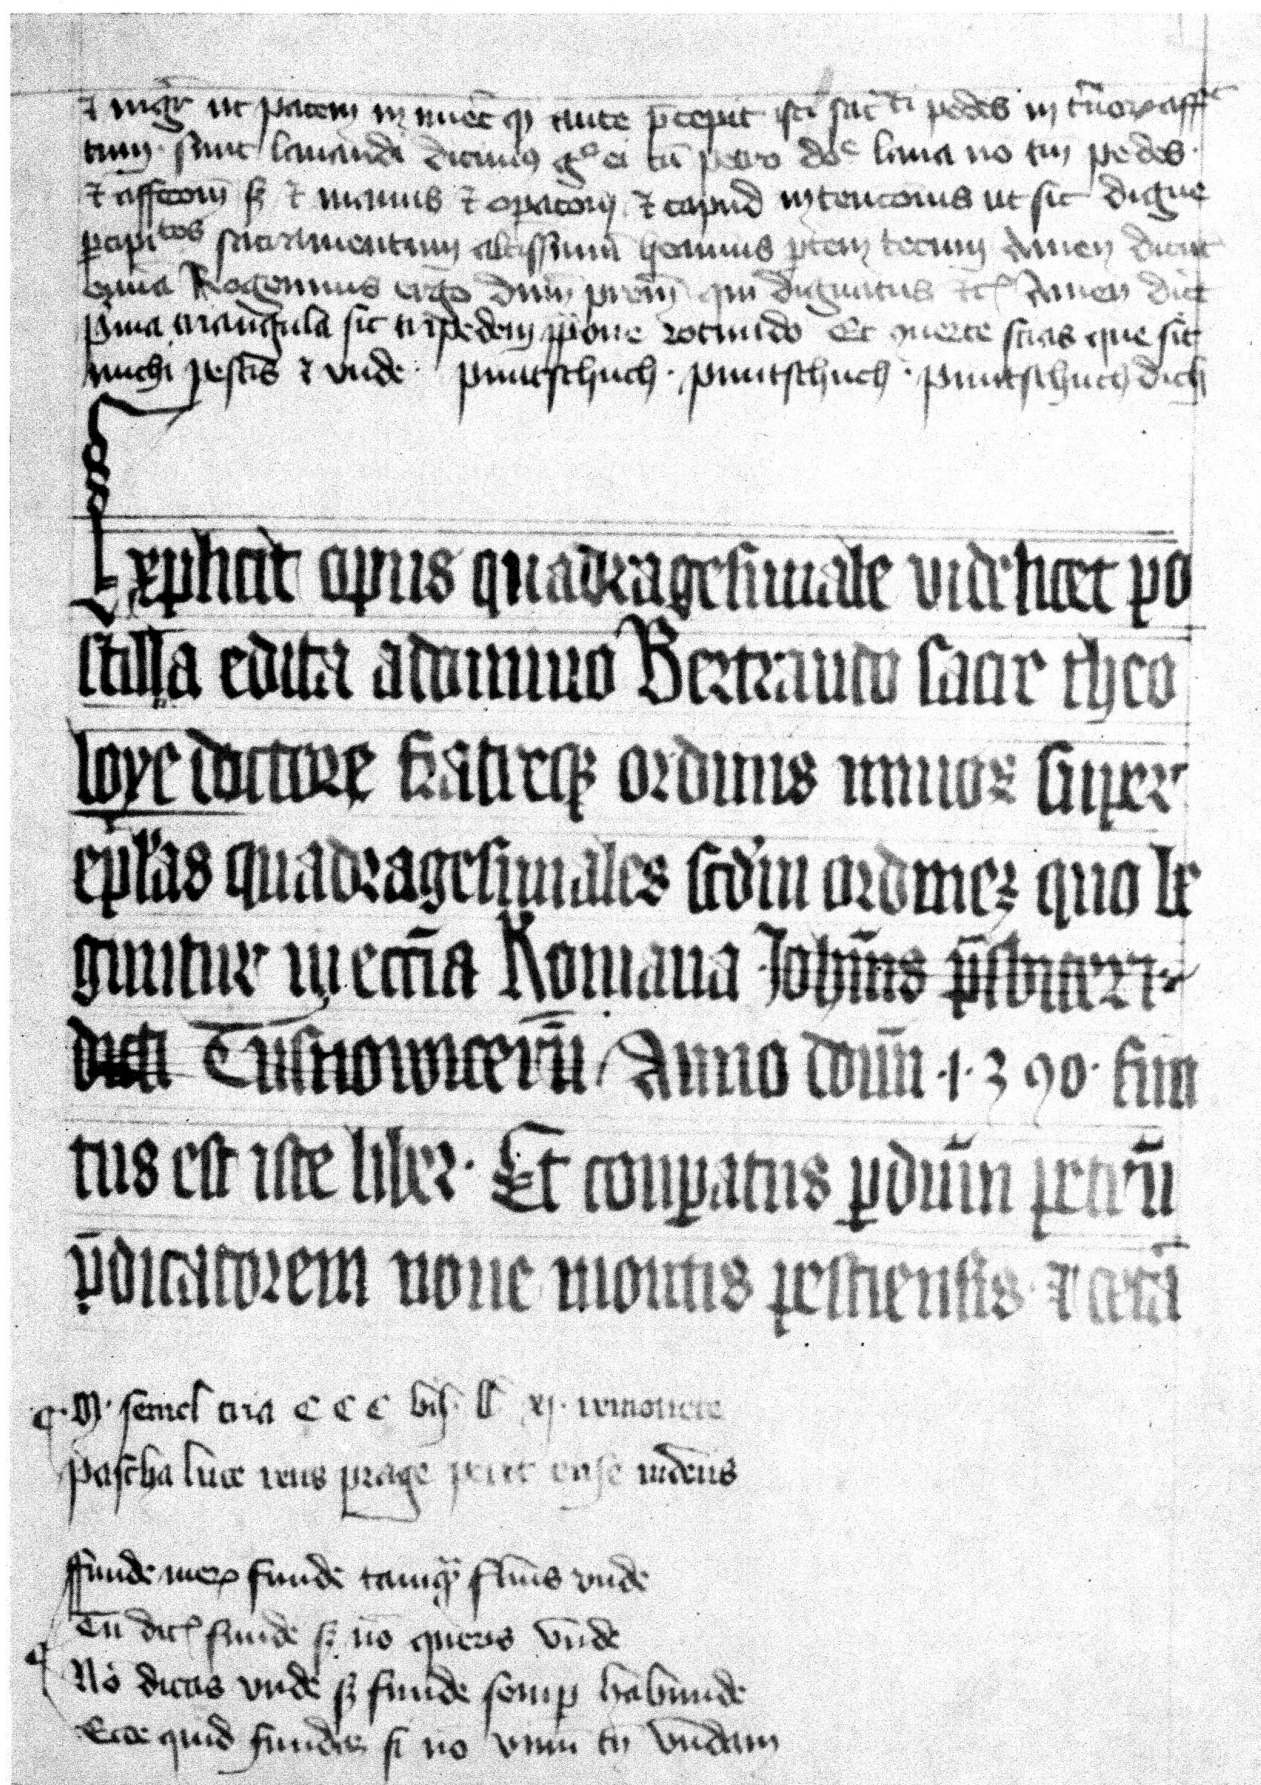 ⁊ mgr̄ ut patem in mēc qͥ ante p̄cepit isti pedes in
tum sunt lauandi dicimꝰ gͦ ei cū petro doᵉ laua nō tm̄ pedes
⁊ affectōm sꝫ ⁊ manus ⁊ opacōnī ⁊ capud intencōnis ut sic digne
ꝑcipītes sacramentum altissimū heamus ꝑtem tecum Amen dicat
oīa Rogemus ergo dnm̄ prēm qui dignatus ⁊cͭ Amen dicit
pͥma triangula sic tripedem ppone rotundo Et querere scias que sit
michi pestis ⁊ unde puntschuch · puntschuch · puntschuch dich
Explicit opus quadragesimale videlicet po
stilla edita adomino Bertrando sacre theo
loye doctore fratreqꝫ ordinis minoꝝ super
ep̄las quadragesimales scdm̄ ordineꝫ quo le
guntur in eccīa Romana Joh̄nis p̄sbiteri·
dicti Tusnowicerū Anno domī ·1·390· fini
tus est iste liber· Et conꝑatus ꝑ dnm̄ petrū
p̄dicatorem noue montis pestiensis· ⁊ cetā
M· semel tria C C C bis ll xj· remouete
Pascha luce reus prage perit ense iudeus
ffunde meꝝ funde tamqͣ flumīs unde
Tu dicͭ funde sꝫ nō queris vnde
Nō dicas unde sꝫ funde semꝑ habunde
Ecce quid funder si nō vnm̄ tm̄ vndam